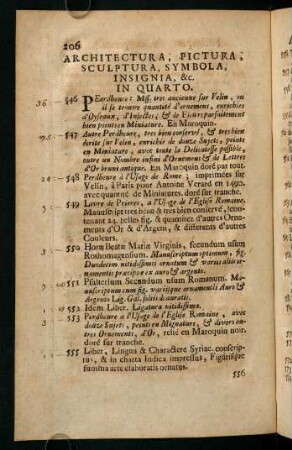 206
ARCHITECTURA, PICTURA,
SCULPTURA, SYMBOLA,
INSIGNIA, &c.
IN QUARTO.
546 PErdheure: Mss. tres ancienne sur Velin, ou
il se trouve quantité d'ornement, enrichies
d'Oyseaux, d'Insectes, & de Fleurs parfaitement
bien peints en Miniature. En Maroquin.
547 Autre Perdheure, tres bien conservé, & tres bien
écrite sur Velin, enrichie de douze Sujets, peints
en Miniature, avec toute la Delicatesse possible,
outre un Nombre infini d'Ornements & de Lettres
d'Or bruni antique. En Maroquin doré par tout.
548 Perdheure à l'Usage de Rome; imprimées sur
Velin, à Paris pour Antoine Verard en 1490.
avec quantité de Miniatures. doré sur tranche.
549 Livre de Prieres, a l'Usage de l'Eglise Romaine,
Manuscript tres beau & tres bien conservé, contenant
24. belles fig. & quantité d'autres Ornements
d'Or & d'Argent, & differents d'autres
Couleurs.
550 Horæ Beatæ Mariæ Virginis, secundum usum
Rothomagensum. Manuscriptum optimum, fig.
Duodecim nitidissimis ornatum & variis aliis ornamentis
præcipue ex auro & argento.
551 Psalterium Secundum usum Romanum. Manuscriptum
cum fig. variisque ornamentis Auro &
Argento Lig. Gal. foliis deauratis.
552 Idem Liber. Ligatura nitidissima.
553 Perdheure a l'Usage de l'Eglise Romaine, avec
douze Sujets, peints en Mignature, & divers autres
Ornements, d'Or, relié en Maroquin noir,
doré sur tranche.
555 Liber, Lingua & Charactere Syriac. conscriptus,
& in charta Indica impressus, Figurisque
summa arte elaboratis ornatus.
556